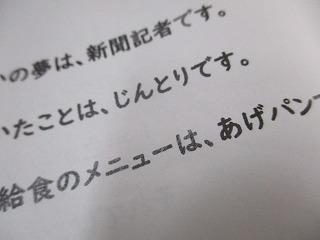 の夢は、新聞記者です。
いたことは、じんとりです。
給食のメニューは、あげパン